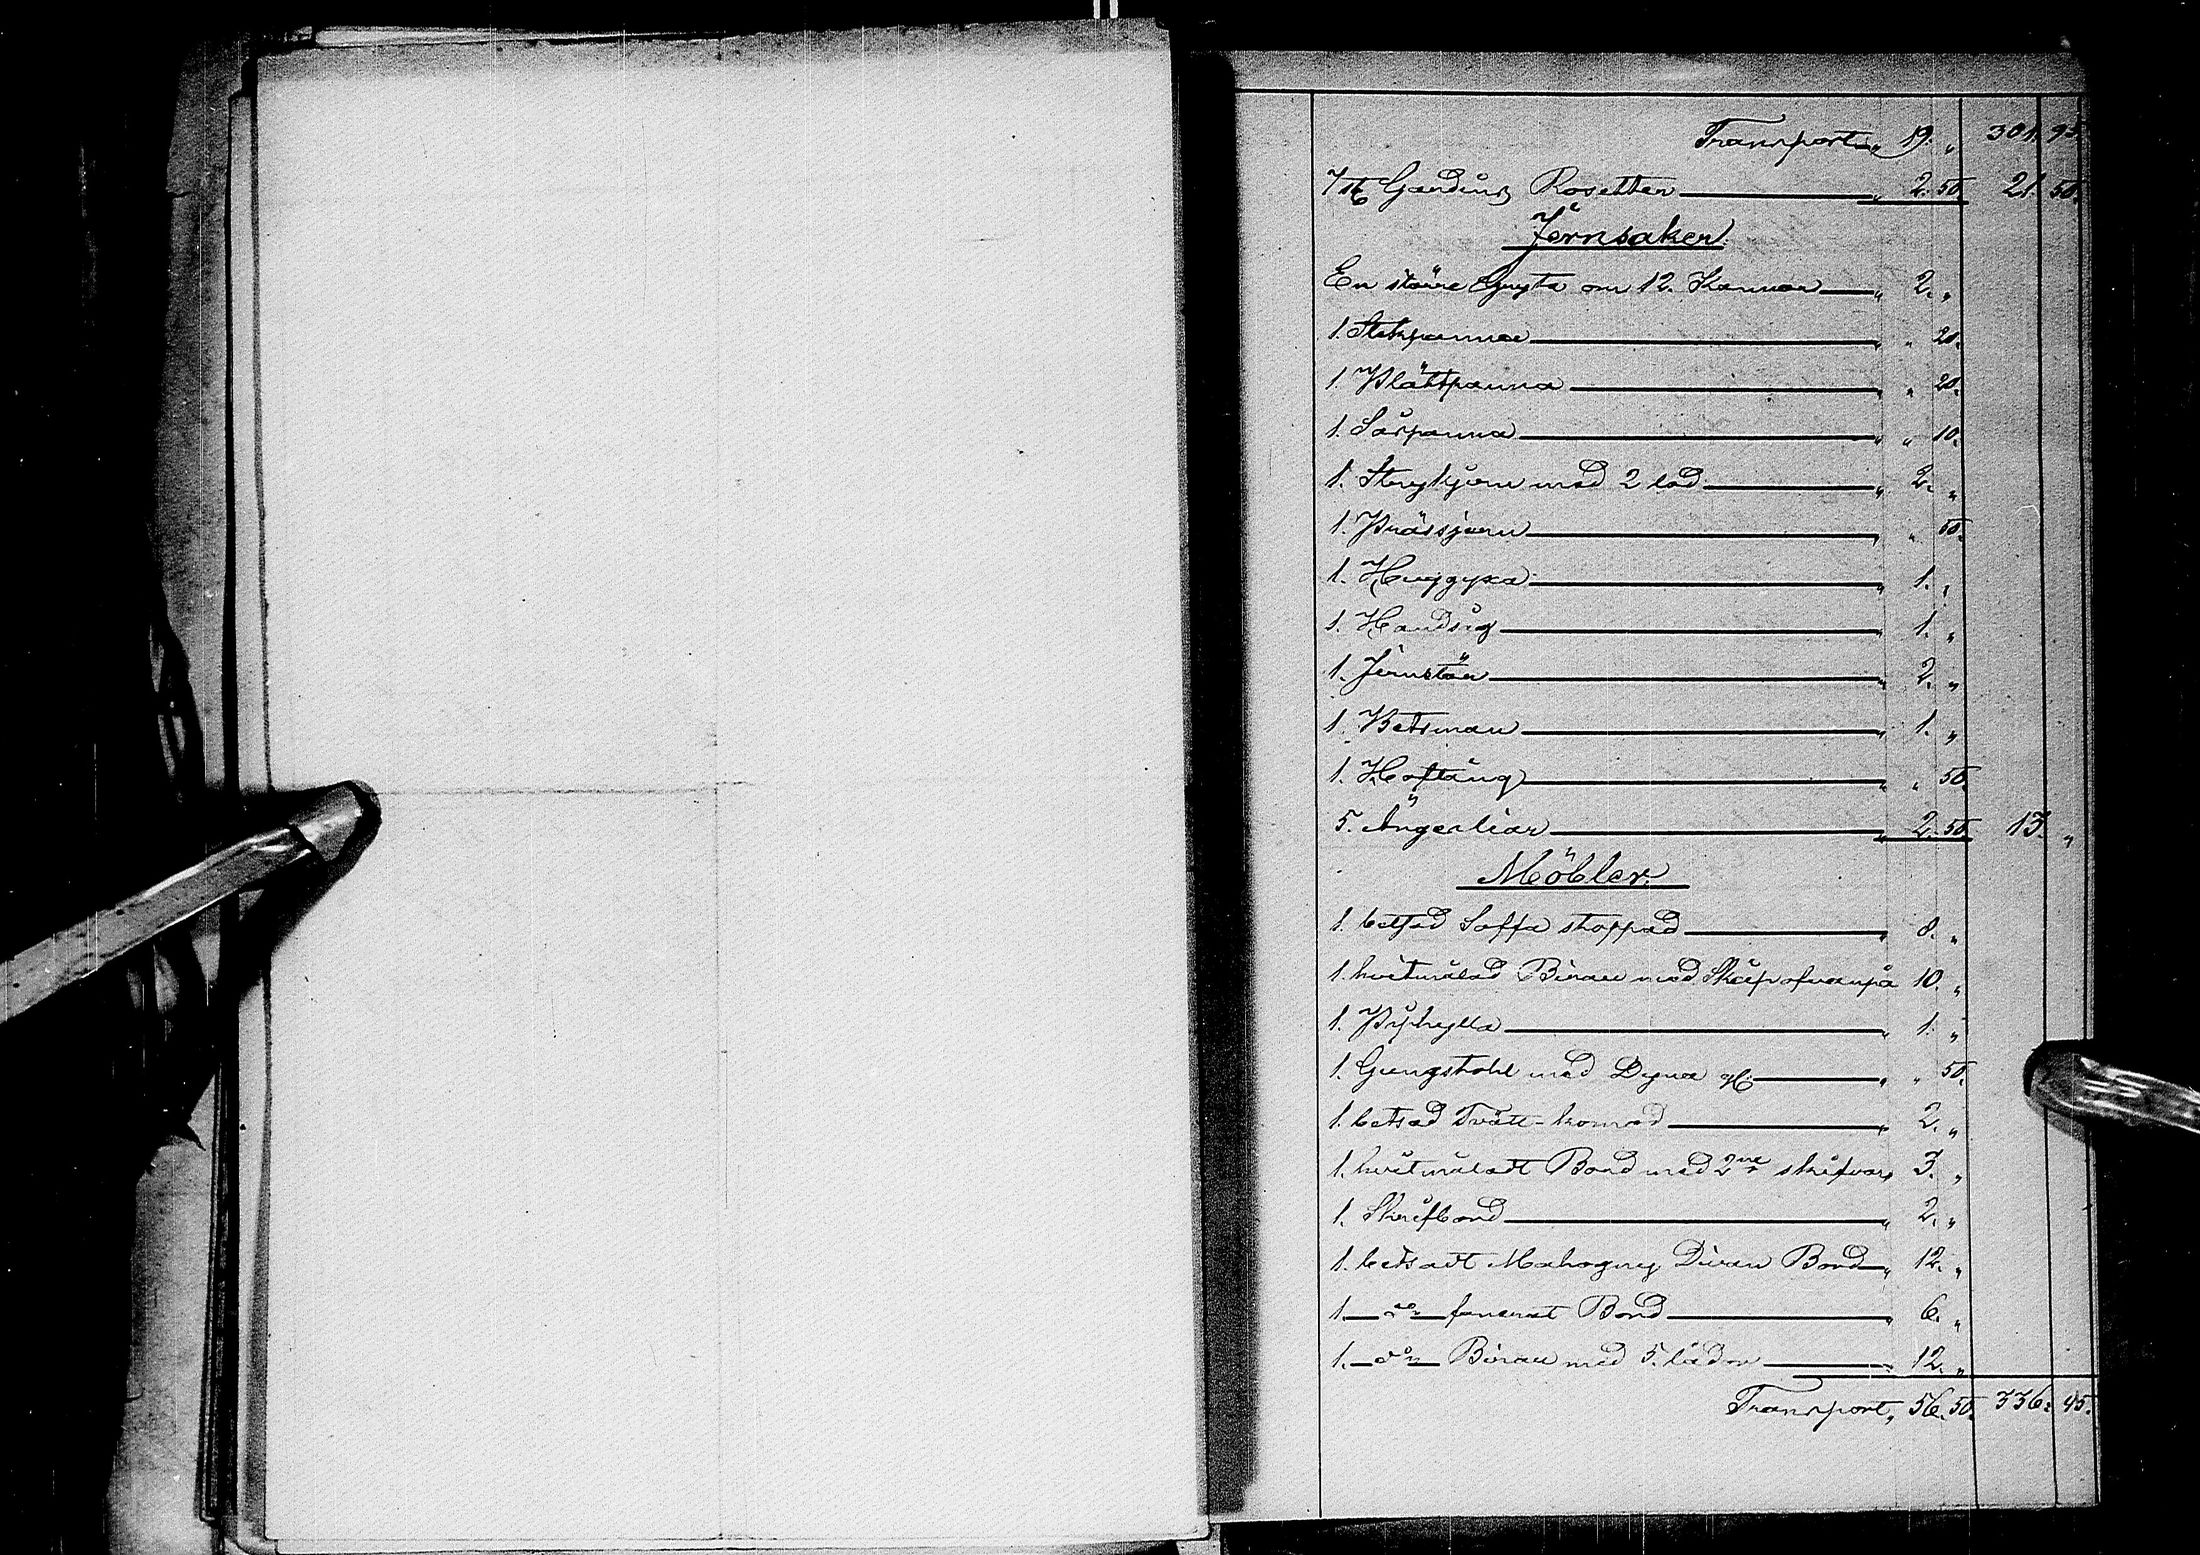 Transport " 19. " 301. 95.
7 st Gardins Rosetter " 2. 50. 21. 50.
Jernsaker.
En större Gryta om 12. Kannor " 2. "
1. Stekpanna " " 20.
1. Plättpanna " " 20.
1. Såspanna " " 10.
1. Strykjern med 2 lod " 2. "
1. Prässjern " " 50.
1. Huggyxa " 1. "
1. Handsåg " 1. "
1. Jernstör " 2. "
1. Betsman " 1. "
1. Hoftång " " 50.
5. Ängesliar " 2. 50. 13. "
Möbler.
1. betsad Soffa stoppad " 8. "
1. hvitmålad Birau med Skåp ofvanpå 10. "
1. Pÿphylla " 1. "
1. Gungstohl med Dyna " " 50.
1. betsad Tvätt-komod " 2. "
1. hvitmåladt Bord med 2ne skifvor 3. "
1. Skrifbord " 2. "
1. betsadt Mahogny Divan Bord " 12. "
1. — do — faneradt Bord " 6. "
1. — do — Birau med 5. lådor " 12. "
Transport " 56. 50. 336. 45.